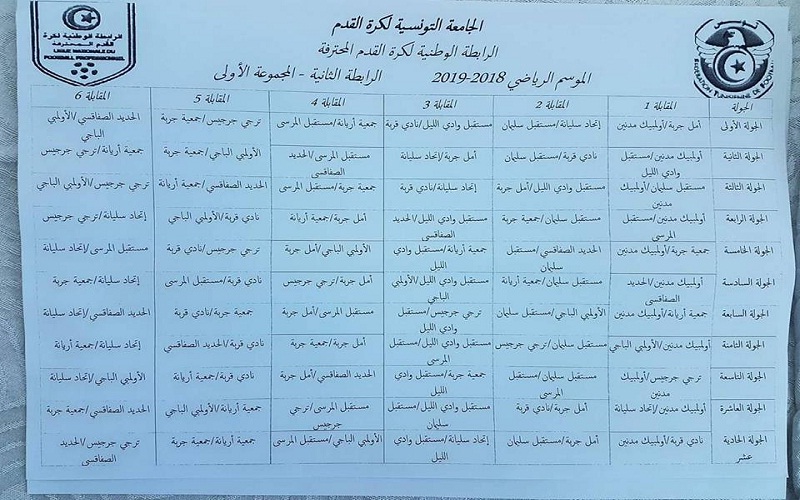 الرابطة الوطنية لكرة
القدم المحترفة
LIGUE NATIONALE DU
FOOTBALL PROFESSIONNEL
الجامعة التونسية لكرة القدم
الرابطة الوطنية لكرة القدم المحترفة
الموسم الرياضي 2018-2019 الرابطة الثانية - المجموعة الأولى
تونس
الجولة المقابلة 1 المقابلة 2 المقابلة 3 المقابلة 4 المقابلة 5 المقابلة 6
الجولة الأولى أمل جربة/أولمبيك مدنين إتحاد سليانة/مستقبل سليمان مستقبل وادي الليل/نادي قربة جمعية أريانة/مستقبل المرسى ترجي جرجيس/جمعية جربة الحديد الصفاقسي/الأولمبي الباجي
الجولة الثانية أولمبيك مدنين/مستقبل وادي الليل نادي قربة/مستقبل سليمان أمل جربة/إتحاد سليانة مستقبل المرسى/الحديد الصفاقسي الأولمبي الباجي/جمعية جربة جمعية أريانة/ترجي جرجيس
الجولة الثالثة مستقبل سليمان/أولمبيك مدنين مستقبل وادي الليل/أمل جربة إتحاد سليانة/نادي قربة جمعية جربة/مستقبل المرسى الحديد الصفاقسي/جمعية أريانة ترجي جرجيس/الأولمبي الباجي
الجولة الرابعة أولمبيك مدنين/مستقبل المرسى مستقبل سليمان/جمعية جربة مستقبل وادي الليل/الحديد الصفاقسي أمل جربة/جمعية أريانة نادي قربة/الأولمبي الباجي إتحاد سليانة/ترجي جرجيس
الجولة الخامسة جمعية جربة/أولمبيك مدنين الحديد الصفاقسي/مستقبل سليمان جمعية أريانة/مستقبل وادي الليل الأولمبي الباجي/أمل جربة ترجي جرجيس/نادي قربة مستقبل المرسى/إتحاد سليانة
الجولة السادسة أولمبيك مدنين/الحديد الصفاقسي مستقبل سليمان/جمعية أريانة مستقبل وادي الليل/الأولمبي الباجي أمل جربة/ترجي جرجيس نادي قربة/مستقبل المرسى إتحاد سليانة/جمعية جربة
الجولة السابعة جمعية أريانة/أولمبيك مدنين الأولمبي الباجي/مستقبل سليمان ترجي جرجيس/مستقبل وادي الليل مستقبل المرسى/أمل جربة جمعية جربة/نادي قربة الحديد الصفاقسي/إتحاد سليانة
الجولة الثامنة أولمبيك مدنين/الأولمبي الباجي مستقبل سليمان/ترجي جرجيس مستقبل وادي الليل/مستقبل المرسى أمل جربة/جمعية جربة نادي قربة/الحديد الصفاقسي إتحاد سليانة/جمعية أريانة
الجولة التاسعة ترجي جرجيس/أولمبيك مدنين مستقبل سليمان/مستقبل المرسى جمعية جربة/مستقبل وادي الليل الحديد الصفاقسي/أمل جربة نادي قربة/جمعية أريانة الأولمبي الباجي/إتحاد سليانة
الجولة العاشرة أولمبيك مدنين/إتحاد سليانة أمل جربة/نادي قربة مستقبل وادي الليل/مستقبل سليمان مستقبل المرسى/ترجي جرجيس جمعية أريانة/الأولمبي الباجي الحديد الصفاقسي/جمعية جربة
الجولة الحادية عشر نادي قربة/أولمبيك مدنين أمل جربة/مستقبل سليمان إتحاد سليانة/مستقبل وادي الليل الأولمبي الباجي/مستقبل المرسى جمعية أريانة/جمعية جربة ترجي جرجيس/الحديد الصفاقسي